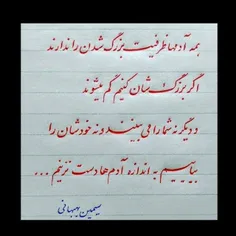 همه آدمها ظرفیت بزرگ شدن را ندارند
اگر بزرگشان کنیم گم میشوند
و دیگر نه شما را می بینند و نه خودشان را
بیاییم به اندازه آدم ها دست نزنیم ...
سیمین بهبهانی